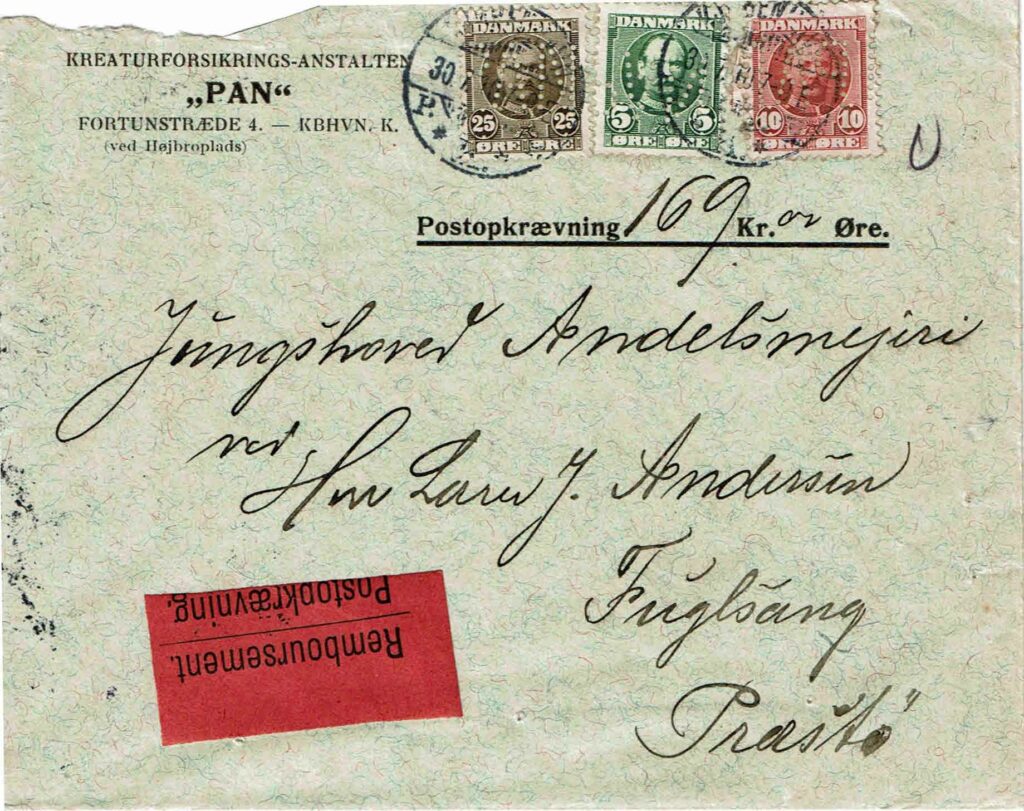 KREATURFORSIKRINGS-ANSTALTEN
„PAN“
FORTUNSTRÆDE 4. — KBHVN. K.
(ved Højbroplads)
DANMARK
25 25
ØRE ØRE
DANMARK
5 5
ØRE ØRE
DANMARK
10 10
ØRE ØRE
30.
Postopkrævning 169 Kr. Øre.
Jungshoved Andelsmejeri
ved
Herr J. Andersen
Fuglsang
Præstø
Postopkrævning.
Remboursement.